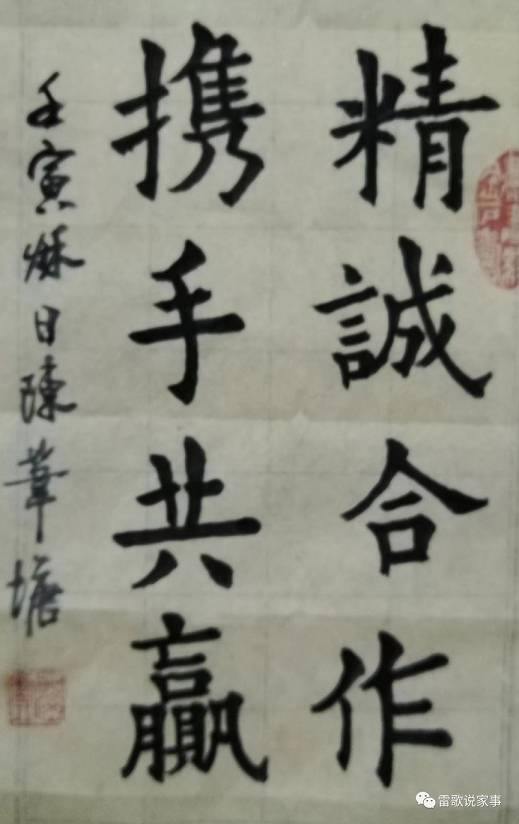 精誠合作
携手共贏
壬寅秌日陳華塘
雷歌说家事